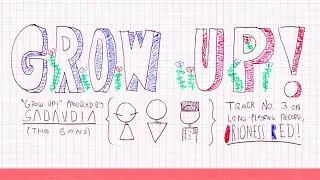 GROW UP!
"GROW UP!" PRODUCED BY
SABAUDIA
(THE BAND)
TRACK NO. 3 ON
LONG-PLAYING RECORD,
ORIONESS RED!